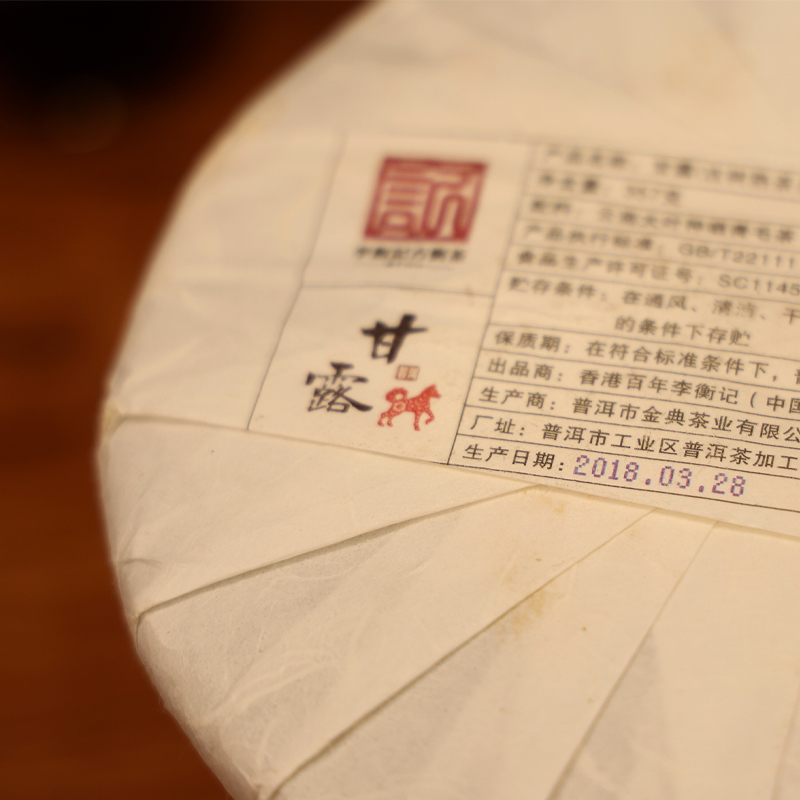 产品名称：甘露
净含量：357克
配料：云南大叶种晒青毛茶
产品执行标准：GB/T22111
食品生产许可证号：SC1145
贮存条件：在通风、清洁、干
的条件下存贮
保质期：在符合标准条件下，
出品商：香港百年李衡记（中国
生产商：普洱市金典茶业有限公
厂址：普洱市工业区普洱茶加工
生产日期：2018.03.28
记
甘露